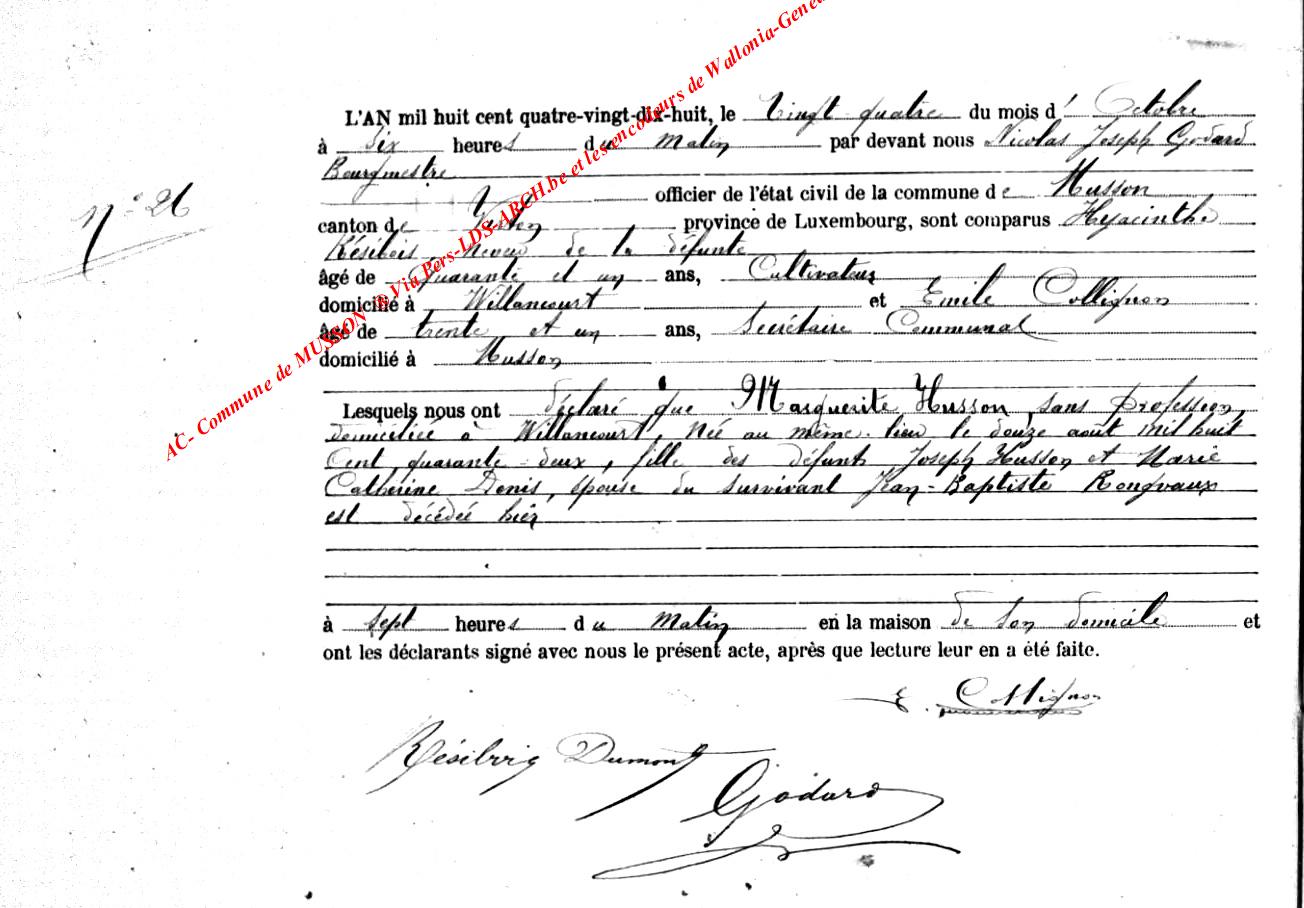 AC- Commune de MUSSON ®Via Pers-LDS-ARCH.be et les encodeurs de Wallonia-Genea
L'AN mil huit cent quatre-vingt-dix-huit, le Vingt quatre du mois d' Octobre
à Six heures du Matin par devant nous Nicolas Joseph Godard
Bourgmestre
N° 26
officier de l'état civil de la commune de Musson
canton de Virton province de Luxembourg, sont comparus Hyacinthe
Résibois neveu de la défunte
âgé de Quarante et un ans, Cultivateur
domicilié à Willancourt et Emile Collignon
âgé de trente et un ans, Secrétaire Communal
domicilié à Musson
Lesquels nous ont déclaré que Marguerite Husson, sans profession,
domiciliée à Willancourt, Née au même lieu le douze août mil huit
Cent quarante-deux, fille des défunts Joseph Husson et Marie
Catherine Denis, épouse du survivant Jean-Baptiste Rongvaux
est décédée hier
à Sept heures du Matin en la maison de son domicile et
ont les déclarants signé avec nous le présent acte, après que lecture leur en a été faite.
E. Collignon
Résibois Dumont
Godard